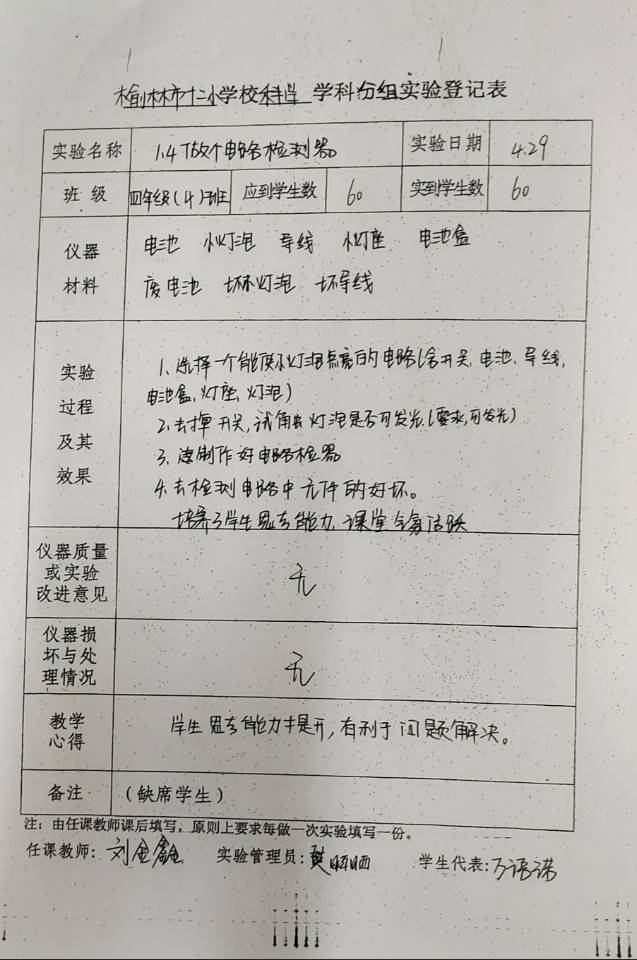 榆林市十二小学校科学 学科分组实验登记表
实验名称 1.4 做个电路检测器 实验日期 4.29
班级 四年级(4)班 应到学生数 60 实到学生数 60
仪器 电池 小灯泡 导线 小灯座 电池盒
材料 废电池 坏小灯泡 坏导线
实验 1、选择一个能使小灯泡点亮的电路(含开关、电池、导线,
过程 电池盒,灯座,灯泡)
及其 2、去掉开关,试触灯泡是否可发光.(要求,可发光)
效果 3、制作好电路检器
4、去检测电路中元件的好坏。
培养了学生思考能力,课堂活跃
仪器质量
或实验
改进意见 无
仪器损
坏与处
理情况 无
教学
心得 学生思考能力提升,有利于问题解决。
备注 (缺席学生)
注:由任课教师课后填写,原则上要求每做一次实验填写一份。
任课教师: 刘金鑫 实验管理员: 晒晒 学生代表: 万语诺